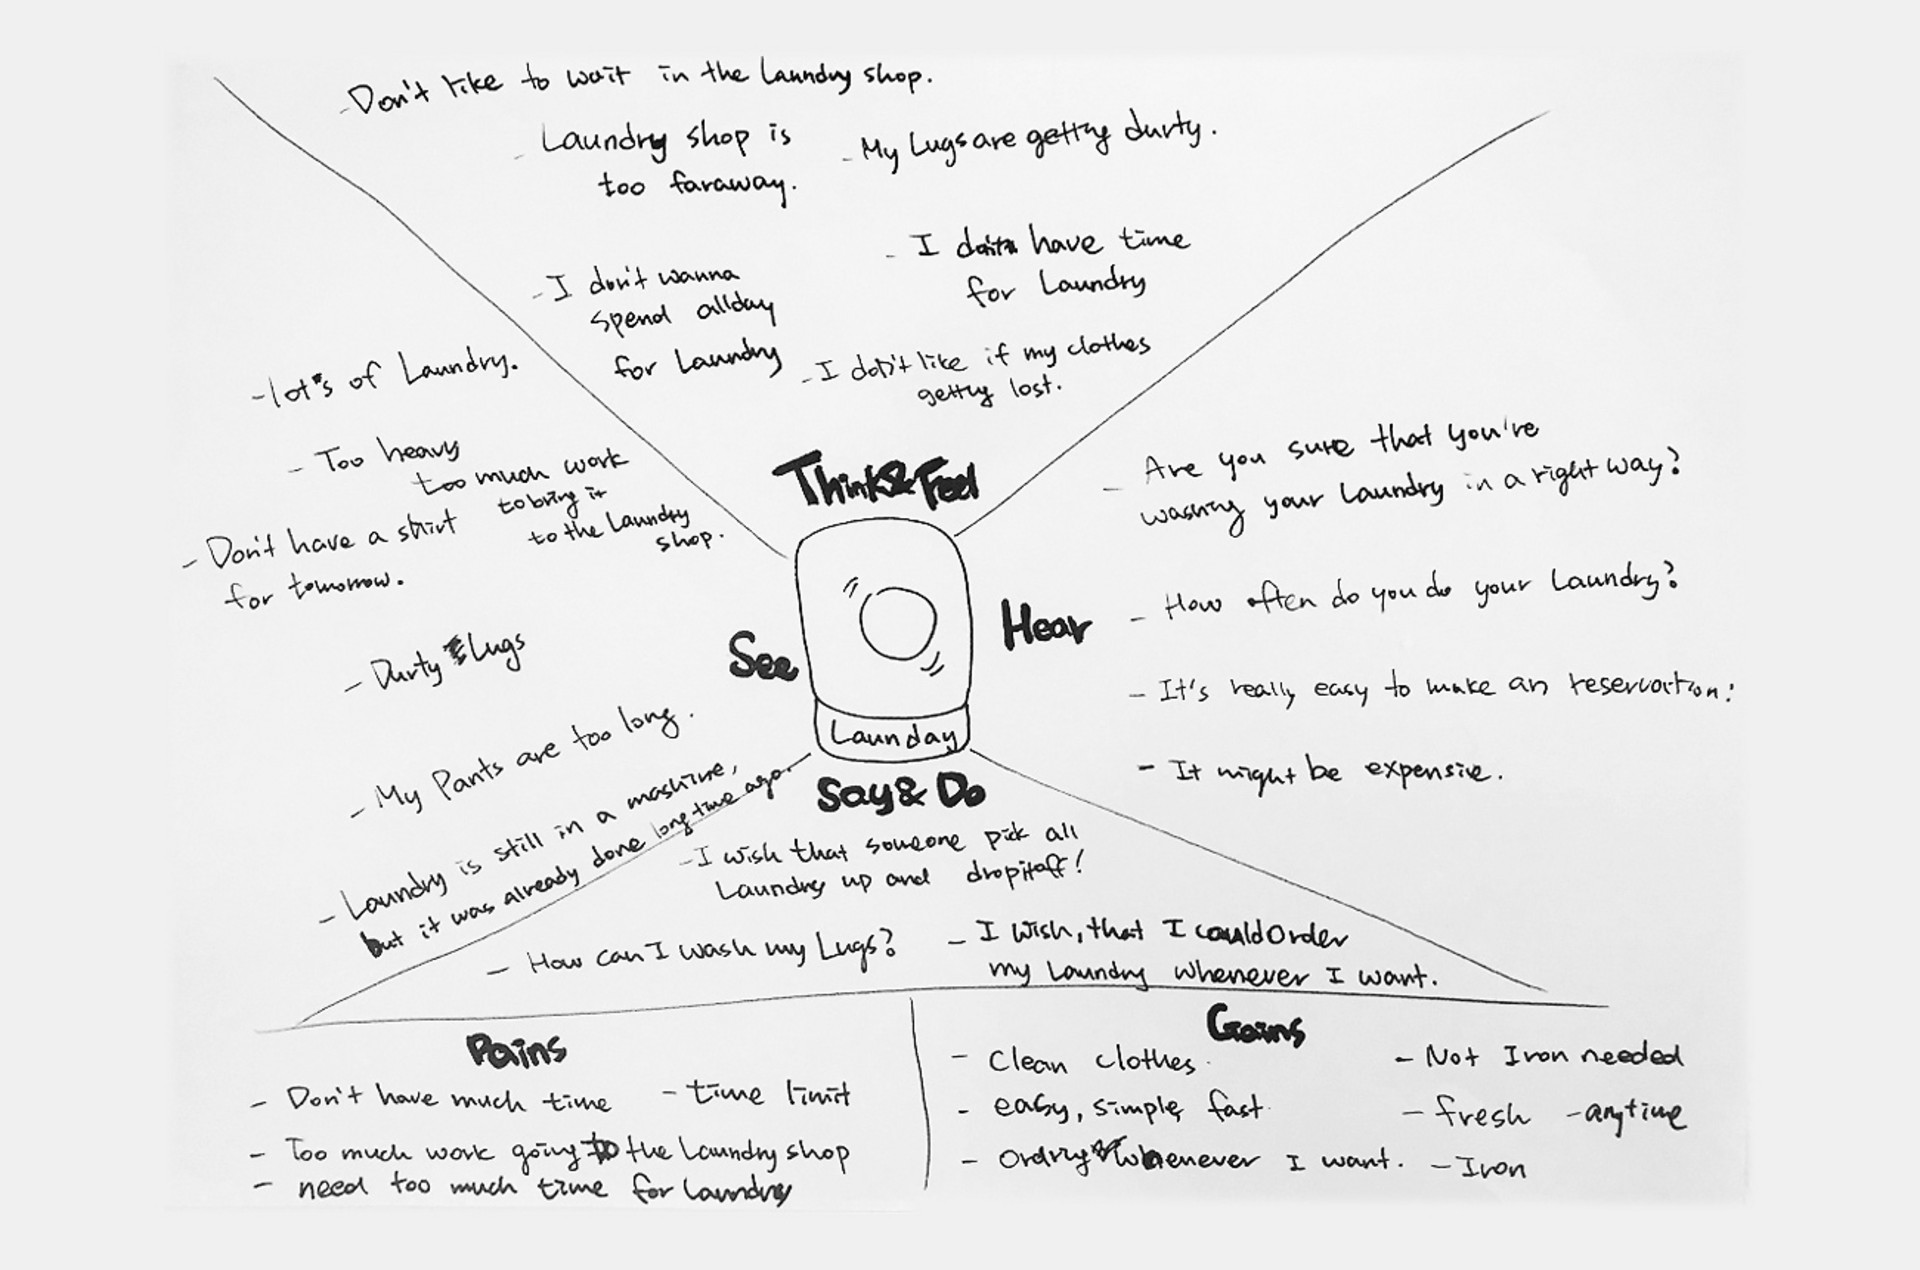 - Don't like to wait in the Laundry shop.
- Laundry shop is
too faraway.
- My Lugs are getting durty.
- I don't have time
for Laundry
- I don't wanna
spend allday
for Laundry
- I don't like if my clothes
getting lost.
Think & Feel
- lot's of Laundry.
- Too heavy
too much work
to bring it
to the Laundry
shop.
- Don't have a shirt
for tomorrow.
- Durty Lugs
- My Pants are too long.
- Laundry is still in a mashine,
but it was already done long time ago.
See
Launday
Hear
- Are you sure that you're
washing your Laundry in a right way?
- How often do you do your Laundry?
- It's really easy to make an reservation!
- It might be expensive.
Say & Do
- I wish that someone pick all
Laundry up and dropitoff!
- How can I wash my Lugs?
- I wish, that I could order
my Laundry whenever I want.
Pains
- Don't have much time
- time limit
- Too much work going to the Laundry shop
- need too much time for Laundry
Gains
- Clean clothes.
- Not Iron needed
- easy, simple, fast
- fresh
- anytime
- Ordring whenever I want.
- Iron